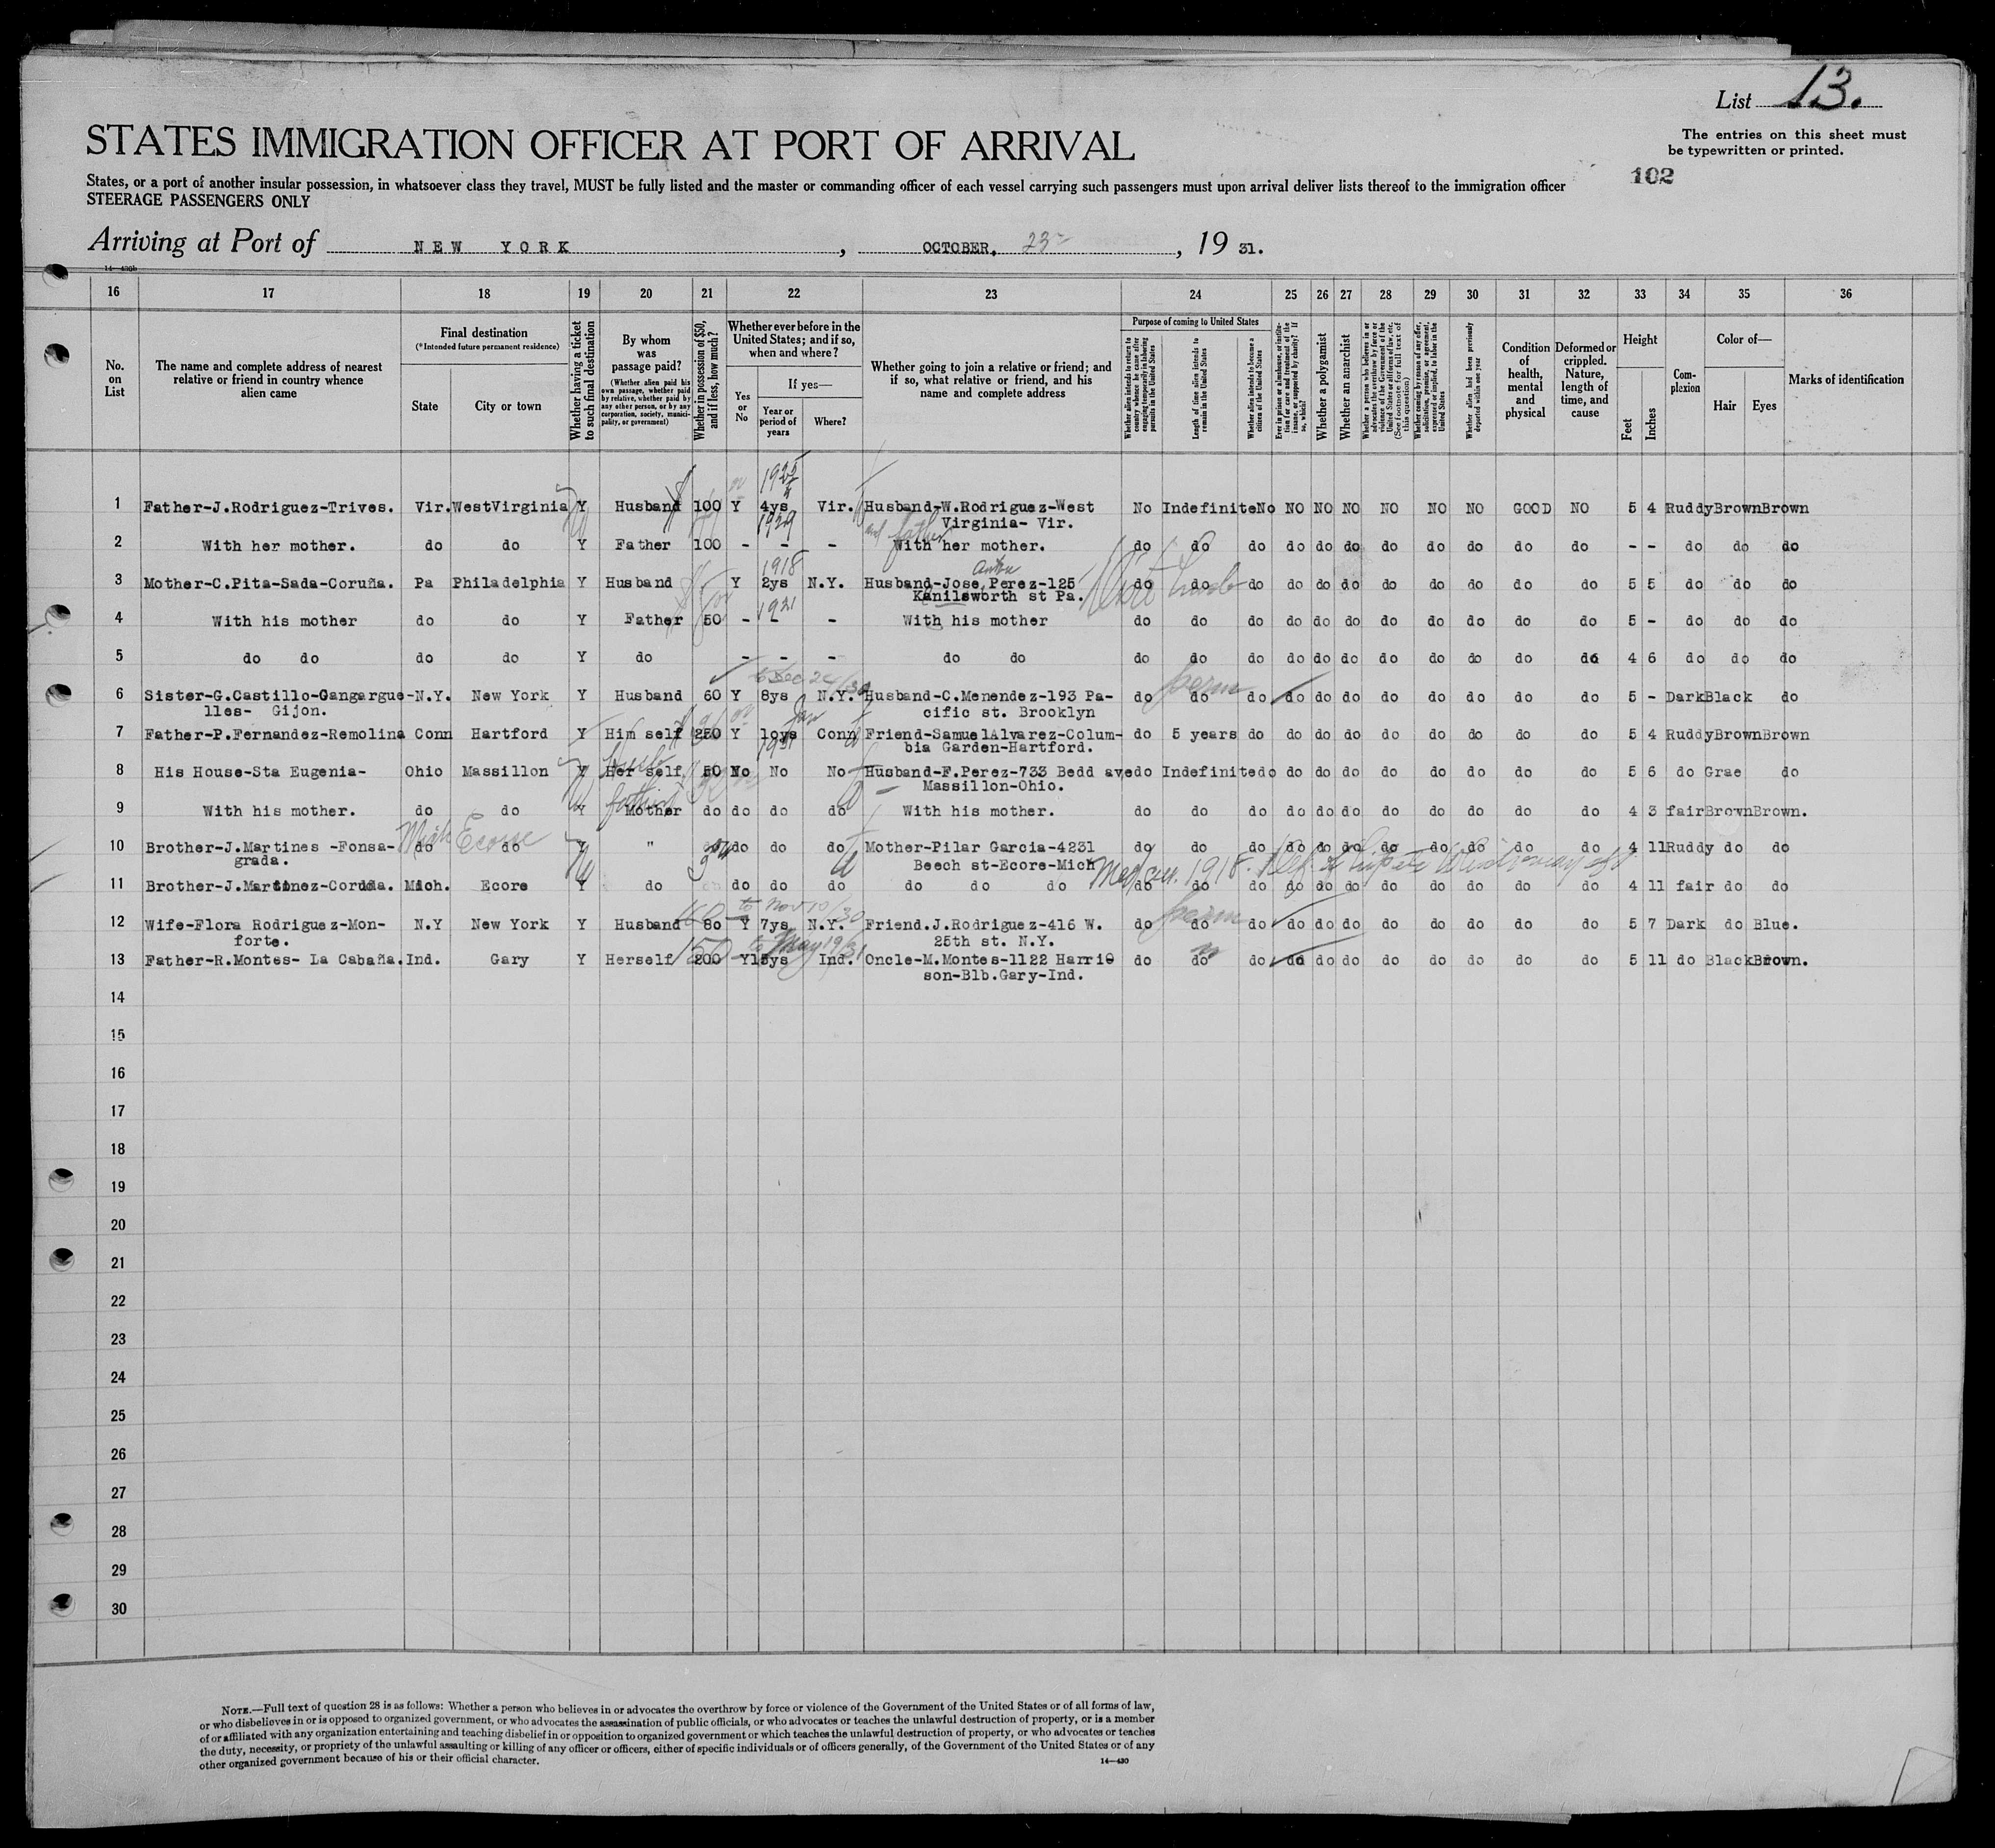 List 13.
STATES IMMIGRATION OFFICER AT PORT OF ARRIVAL
The entries on this sheet must
be typewritten or printed.
102
States, or a port of another insular possession, in whatsoever class they travel, MUST be fully listed and the master or commanding officer of each vessel carrying such passengers must upon arrival deliver lists thereof to the immigration officer
STEERAGE PASSENGERS ONLY
Arriving at Port of NEW YORK, OCTOBER, 23, 19 31.
14—430b
16 17 18 19 20 21 22 23 24 25 26 27 28 29 30 31 32 33 34 35 36
No. on List
The name and complete address of nearest relative or friend in country whence alien came
Final destination
(*Intended future permanent residence)
State
City or town
Whether having a ticket to such final destination
By whom was passage paid?
(Whether alien paid his own passage, whether paid by relative, whether paid by any other person, or by any corporation, society, municipality, or government)
Whether in possession of $50, and if less, how much?
Whether ever before in the United States; and if so, when and where?
Yes or No
If yes—
Year or period of years
Where?
Whether going to join a relative or friend; and if so, what relative or friend, and his name and complete address
Purpose of coming to United States
Whether alien intends to return to country whence he came after engaging temporarily in laboring pursuits in the United States
Length of time alien intends to remain in the United States
Whether alien intends to become a citizen of the United States
Ever in prison or almshouse, or institution for care and treatment of the insane, or supported by charity? If so, which?
Whether a polygamist
Whether an anarchist
Whether a person who believes in or advocates the overthrow by force or violence of the Government of the United States or all forms of law, etc. (See footnote for full text of this question)
Whether coming by reason of any offer, solicitation, promise, or agreement, expressed or implied, to labor in the United States
Whether alien had been previously deported within one year
Condition of health, mental and physical
Deformed or crippled. Nature, length of time, and cause
Height
Feet
Inches
Complexion
Color of—
Hair
Eyes
Marks of identification
1925
1 Father-J.Rodriguez-Trives. Vir. WestVirginia Y Husband 100 Y 4ys Vir. Husband-W.Rodriguez-West No Indefinite No NO NO NO NO NO NO GOOD NO 5 4 Ruddy Brown Brown
1929 Virginia- Vir.
and father
2 With her mother. do do Y Father 100 - - - With her mother. do do do do do do do do do do do - - do do do
1918
3 Mother-C.Pita-Sada-Coruña. Pa Philadelphia Y Husband Y 2ys N.Y. Husband-Jose Perez-125 do do do do do do do do do do do 5 5 do do do
Kanilsworth st Pa.
1921
4 With his mother do do Y Father 50 - - - With his mother do do do do do do do do do do do 5 - do do do
5 do do do do Y do - - - do do do do do do do do do do do do do 4 6 do do do
Dec 24/30
6 Sister-G.Castillo-Gangargue- N.Y. New York Y Husband 60 Y 8ys N.Y. Husband-C.Menendez-193 Pa- do perm do do do do do do do do do do 5 - Dark Black do
lles- Gijon. cific st. Brooklyn
7 Father-P.Fernandez-Remolina Conn Hartford Y Him self 250 Y 10ys Conn Friend-SamuelAlvarez-Colum- do 5 years do do do do do do do do do 5 4 Ruddy Brown Brown
1931 bia Garden-Hartford.
8 His House-Sta Eugenia- Ohio Massillon Y Her self 50 No No No Husband-F.Perez-733 Bedd ave do Indefinite do do do do do do do do do 5 6 do Grae do
Massillon-Ohio.
9 With his mother. do do Y Mother do do do do With his mother. do do do do do do do do do do do 4 3 fair Brown Brown.
Mich Ecorse
10 Brother-J.Martines -Fonsa- do do Y " do do do Mother-Pilar Garcia-4231 do do do do do do do do do do do 4 11 Ruddy do do
grada. Beech st-Ecore-Mich
11 Brother-J.Martinez-Coruña. Mich. Ecore Y do do do do do do do do do do do do do do do do do do do 4 11 fair do do
to Nov 10/30
12 Wife-Flora Rodriguez-Mon- N.Y New York Y Husband 80 Y 7ys N.Y. Friend.J.Rodriguez-416 W. do perm do do do do do do do do do do 5 7 Dark do Blue.
forte. 25th st. N.Y.
150 to May 19/31
13 Father-R.Montes- La Cabaña. Ind. Gary Y Herself 200 Y 15ys Ind. Oncle-M.Montes-1122 Harris do do do do do do do do do do do 5 11 do Black Brown.
son-Blb.Gary-Ind.
14
15
16
17
18
19
20
21
22
23
24
25
26
27
28
29
30
NOTE.—Full text of question 28 is as follows: Whether a person who believes in or advocates the overthrow by force or violence of the Government of the United States or of all forms of law,
or who disbelieves in or is opposed to organized government, or who advocates the assassination of public officials, or who advocates or teaches the unlawful destruction of property, or is a member
of or affiliated with any organization entertaining and teaching disbelief in or opposition to organized government or which teaches the unlawful destruction of property, or who advocates or teaches
the duty, necessity, or propriety of the unlawful assaulting or killing of any officer or officers, either of specific individuals or of officers generally, of the Government of the United States or of any
other organized government because of his or their official character.
14—430